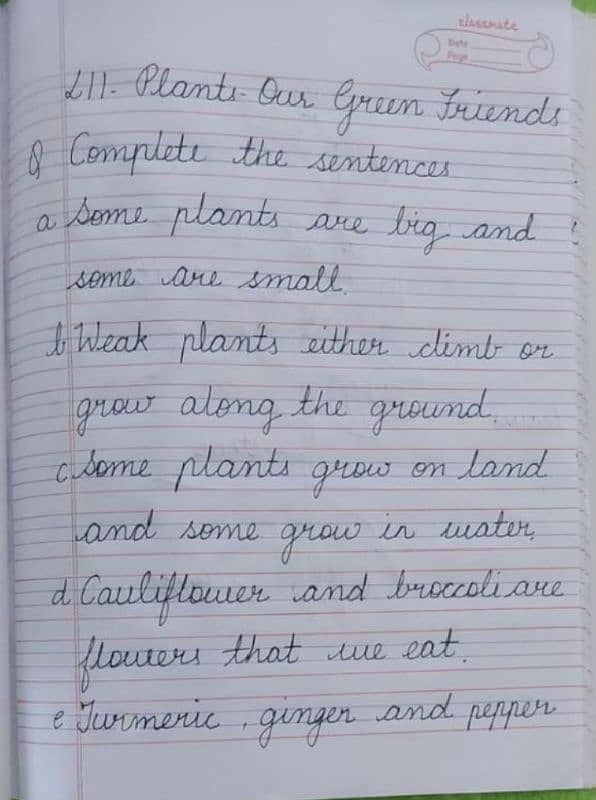 classmate
Date
Page
L11- Plants- Our Green Friends
Q Complete the sentences
a Some plants are big and
some are small.
b Weak plants either climb or
grow along the ground.
c Some plants grow on land
and some grow in water.
d Cauliflower and broccoli are
flowers that we eat.
e Turmeric, ginger and pepper